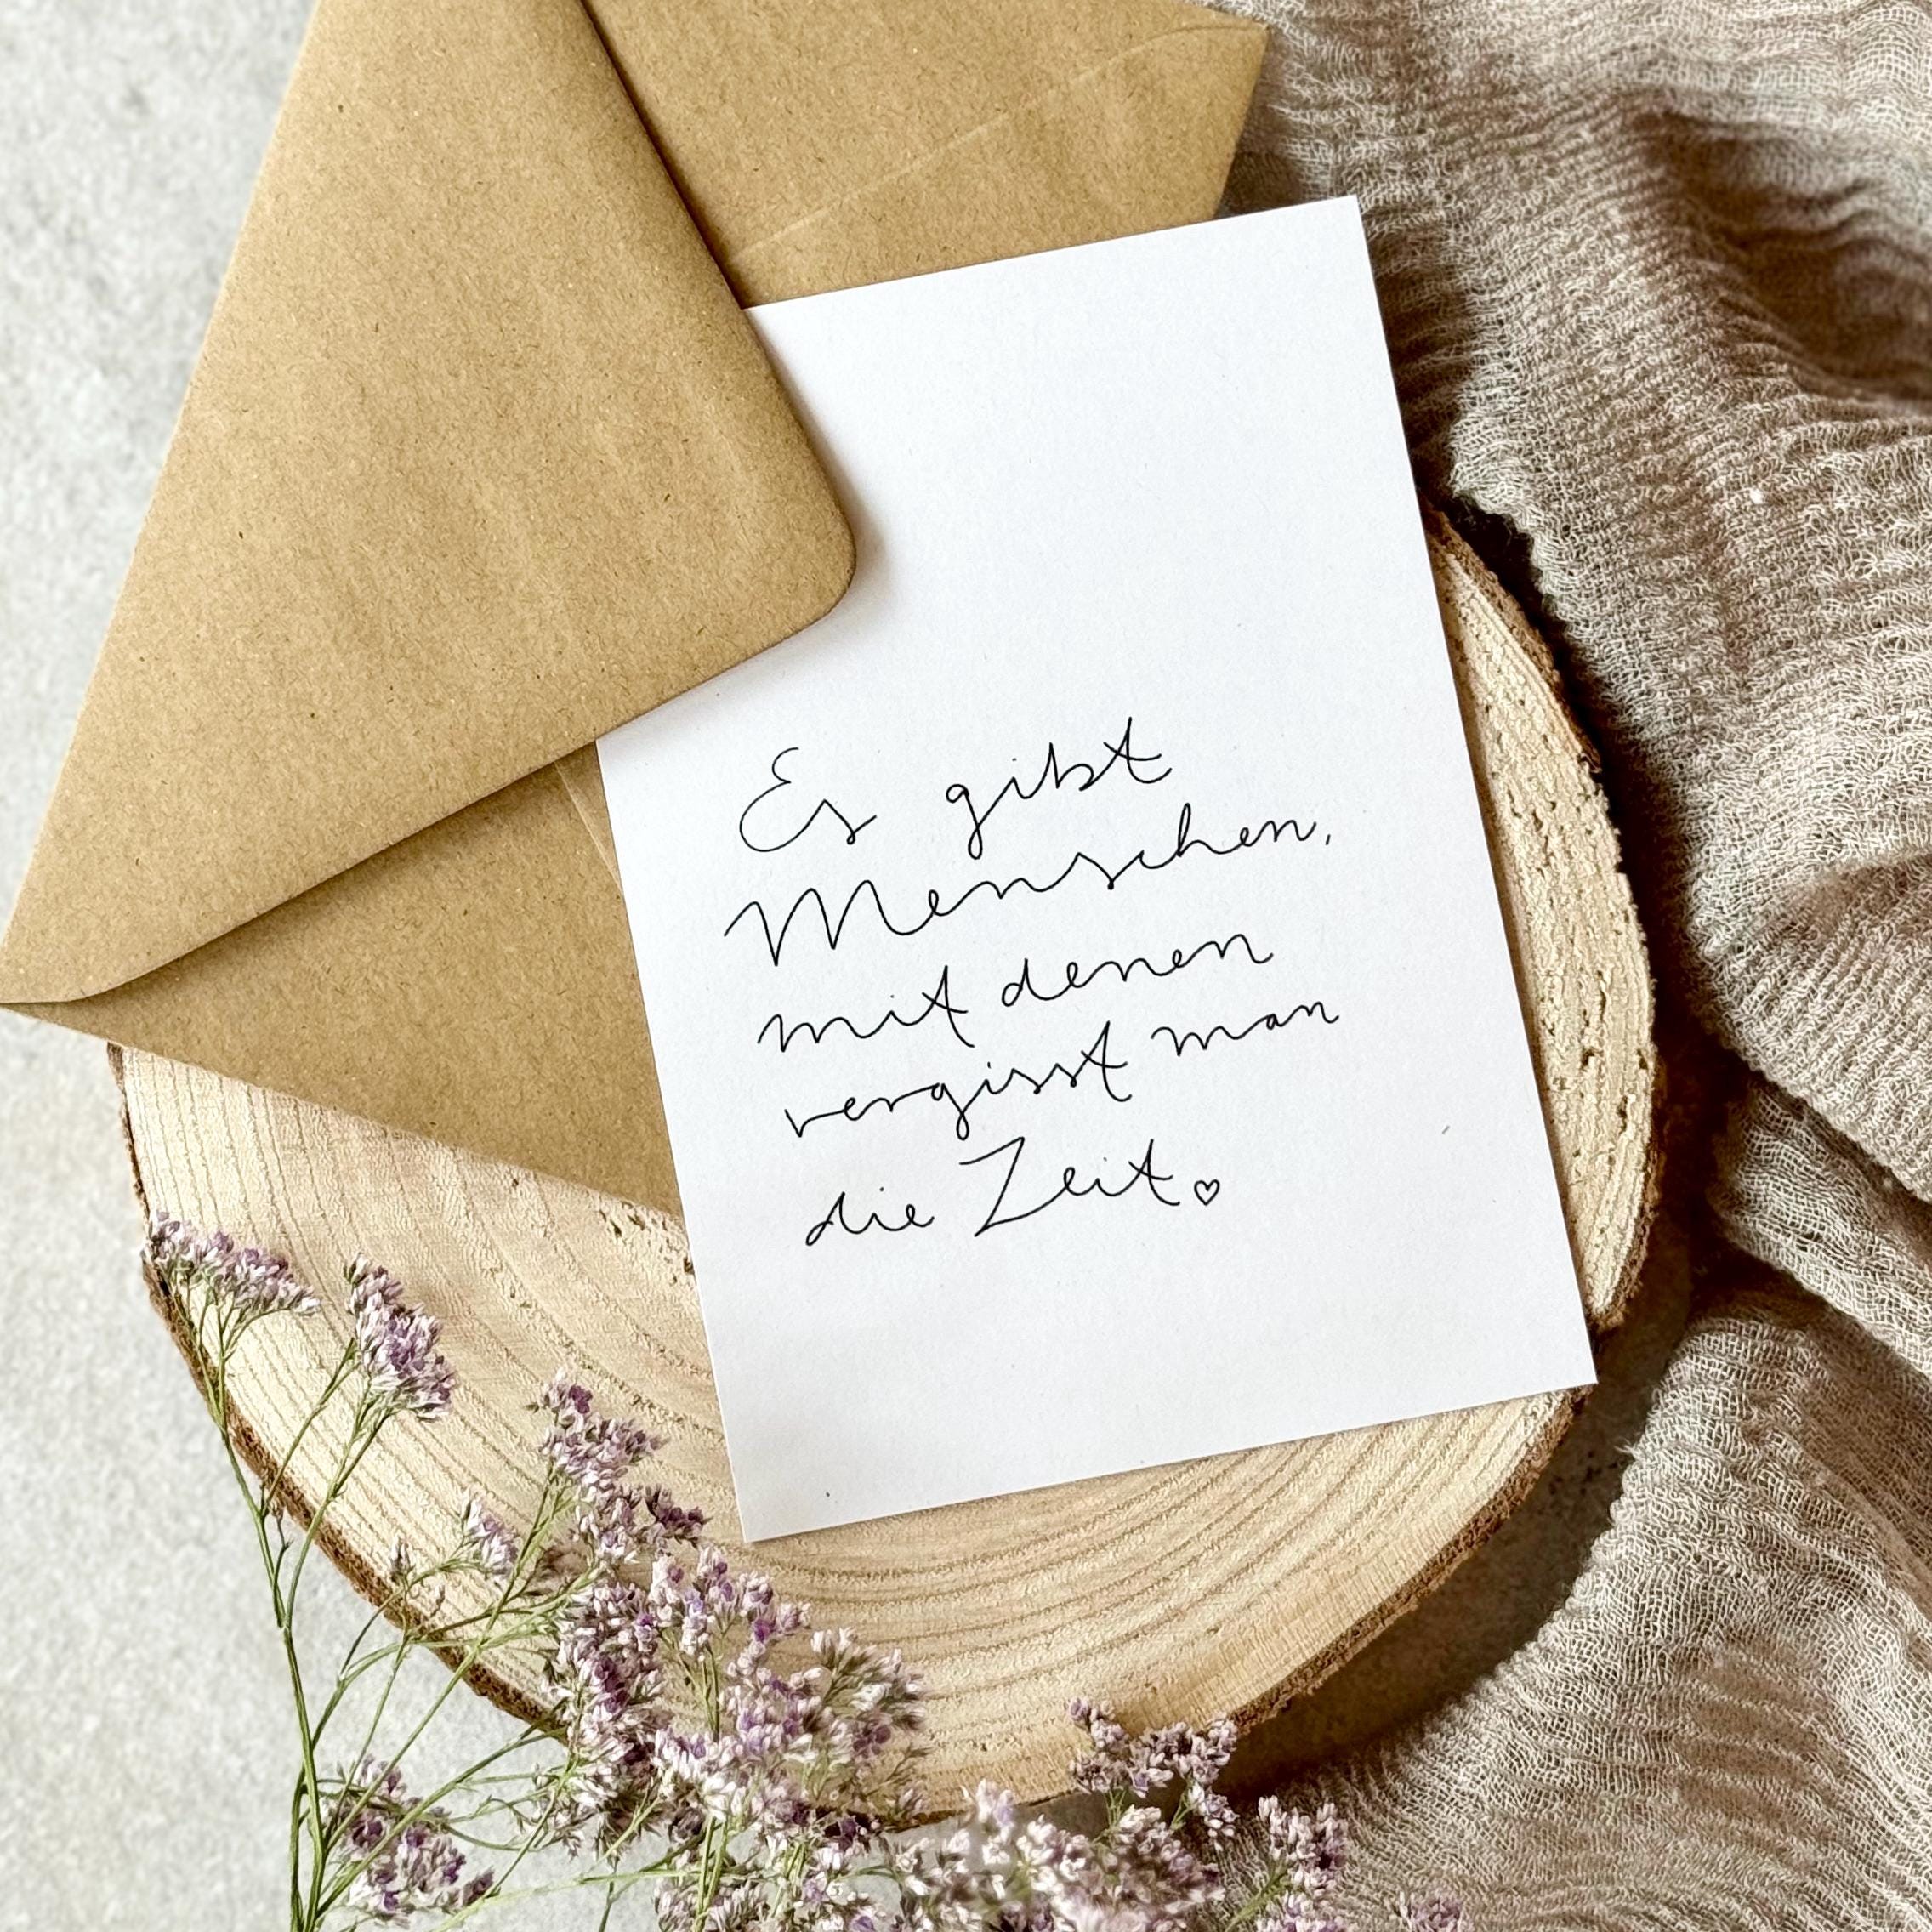 Es gibt
Menschen,
mit denen
vergisst man
die Zeit.♡